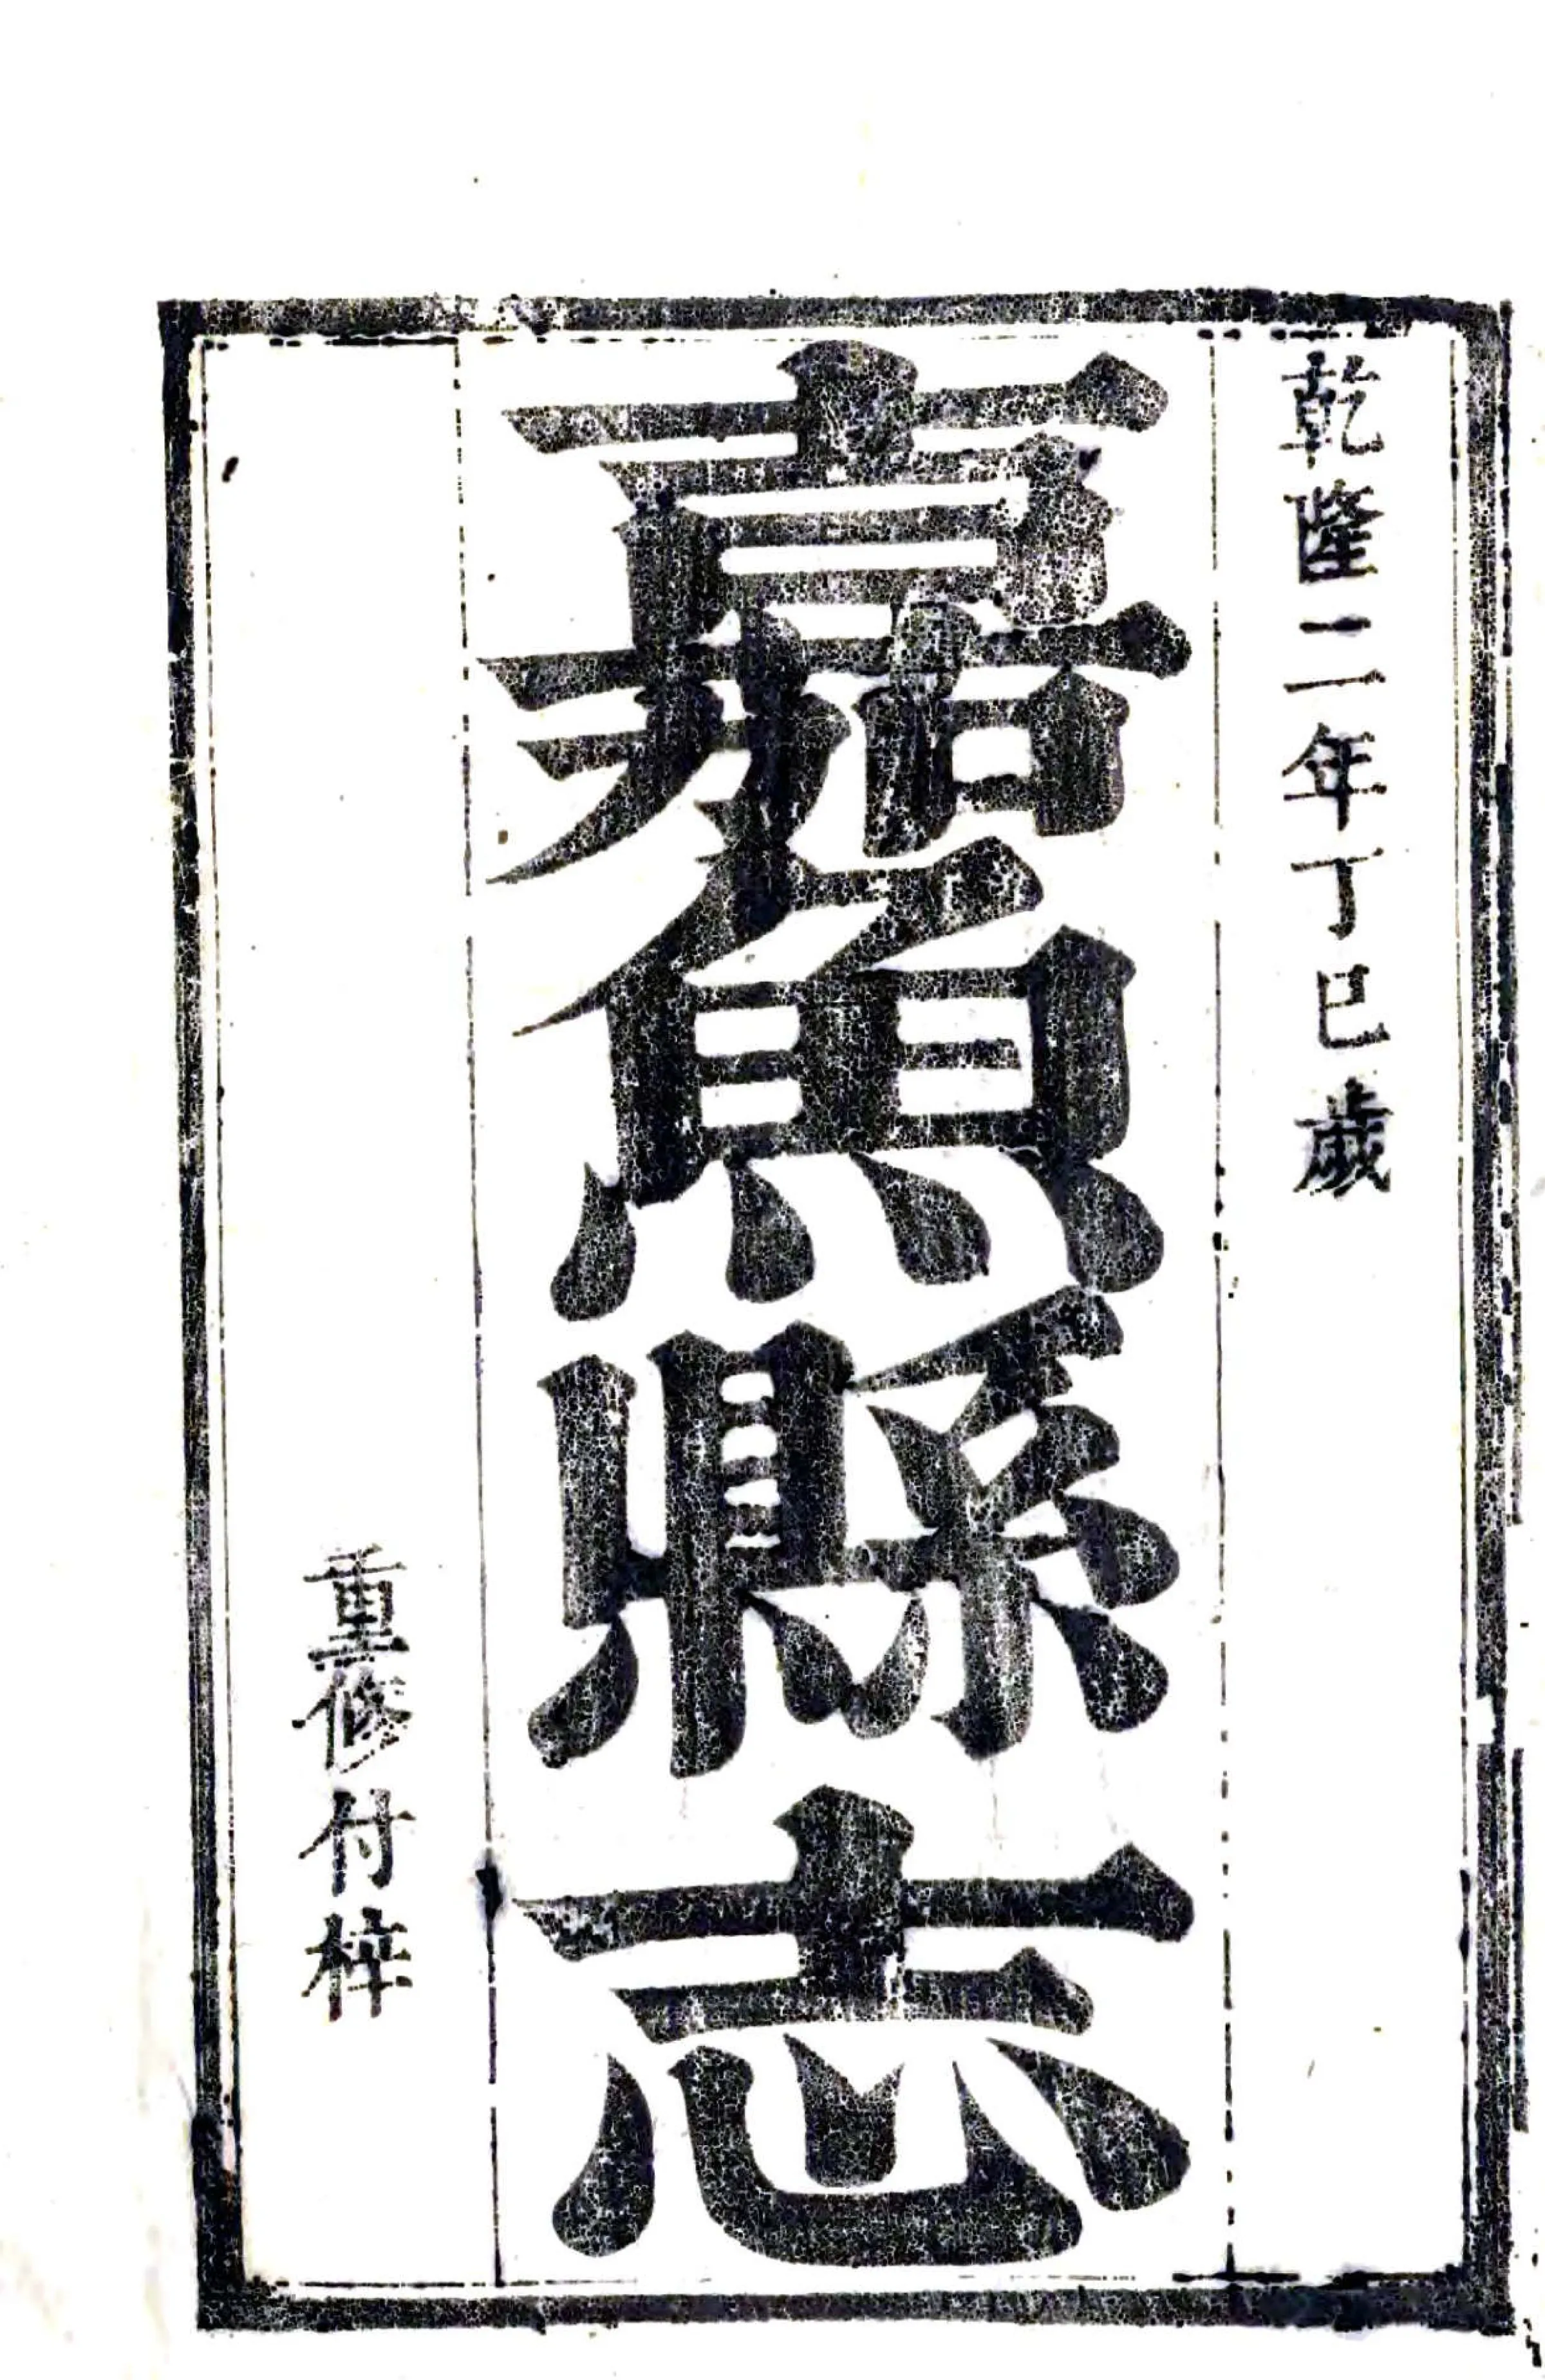 乾隆二年丁巳歲
嘉魚縣志
重修付梓